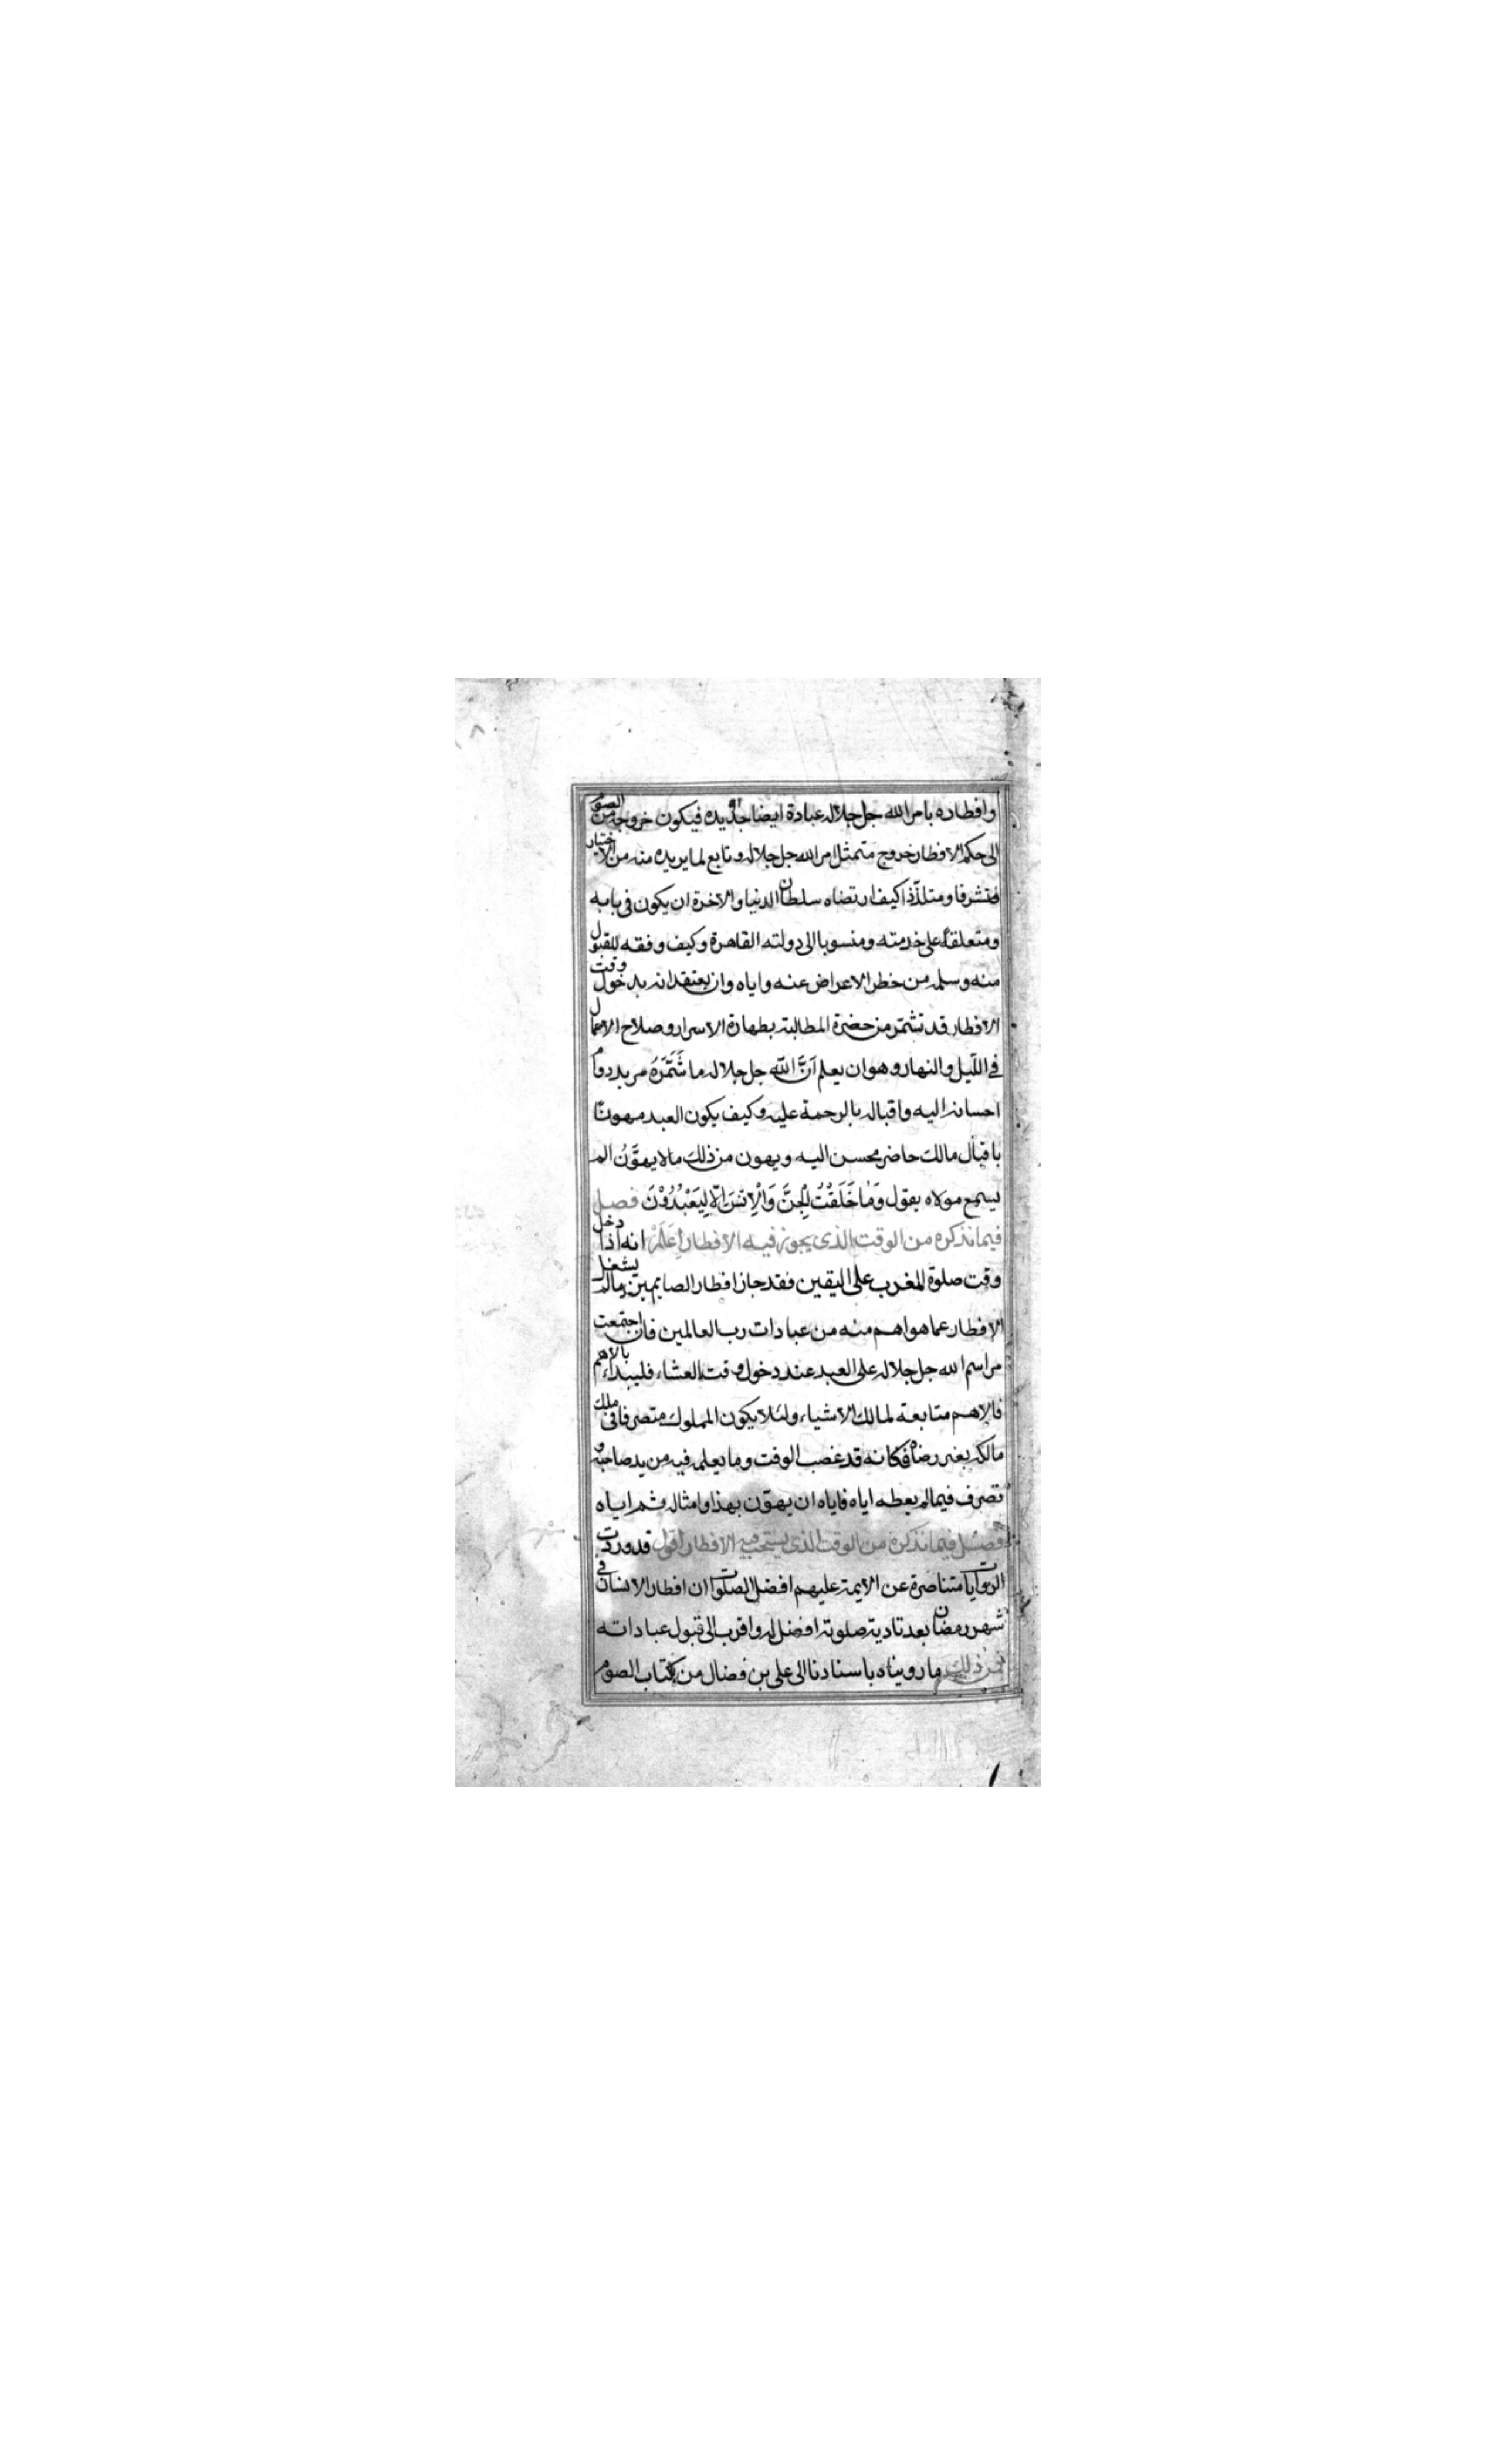 وافطاره بامر الله جل جلاله عبادة ايضا جديده فيكون خروجه من الصوم
الى حكم الافطار خروج متمثل امر الله جل جلاله وتابع لما يريده منه من الاختيار
فتشرفا ومتلذّذا كيف ارتضاه سلطان الدنيا والاخرة ان يكون في بابه
ومتعلقا على خدمته ومنسوبا الى دولته القاهرة وكيف وفقه للقبول
منه وسلمه من خطر الاعراض عنه واياه وان يعتقد انه بدخول وقت
الافطار قد تشمّر من حضرة المطالبة بطهارة الاسرار وصلاح الاعمال
في اللّيل والنهار وهو ان يعلم اَنَّ اللّه جل جلاله ما شَمَّرَهُ مريد دوام
احسانه اليه واقباله بالرحمة عليه وكيف يكون العبد مهونا
باقبال مالك حاضر محسن اليه ويهون من ذلك ما لا يهوَّنُ الم
يسمع مولاه يقول وَمٰا خَلَقْتُ الْجِنَّ وَالْاِنْسَ اِلّا لِيَعْبُدُوْنَ فصل
فيما نذكره من الوقت الذى يجوز فيه الافطار اِعْلَمْ انه اذا دخل
وقت صلوة المغرب على اليقين فقد جاز افطار الصايمين مالم يشغل
الافطار عما هو اهم منه من عبادات رب العالمين فان اجتمعت
مراسم الله جل جلاله على العبد عند دخول وقت العشاء فليبداء بالاهم
فالاهم متابعة لمالك الاشياء ولئلا يكون المملوك متصرفا فى ملك
مالكه بغير رضاه فكانه قد غصب الوقت وما يعلمه فيه من يد صاحبه و
تصرف فيما لم يعطه اياه فاياه ان يهوّن بهذا وامثاله ثم اياه
فصل فيما نذكره من الوقت الذى يستحب فيه الافطار اقول قد وردت
الروايات متناصرة عن الايمة عليهم افضل الصلوات ان افطار الانسان فى
شهر رمضان بعد تادية صلوته افضل له واقرب الى قبول عباداته
فمن ذلك ما رويناه باسنادنا الى على بن فضال من كتاب الصوم